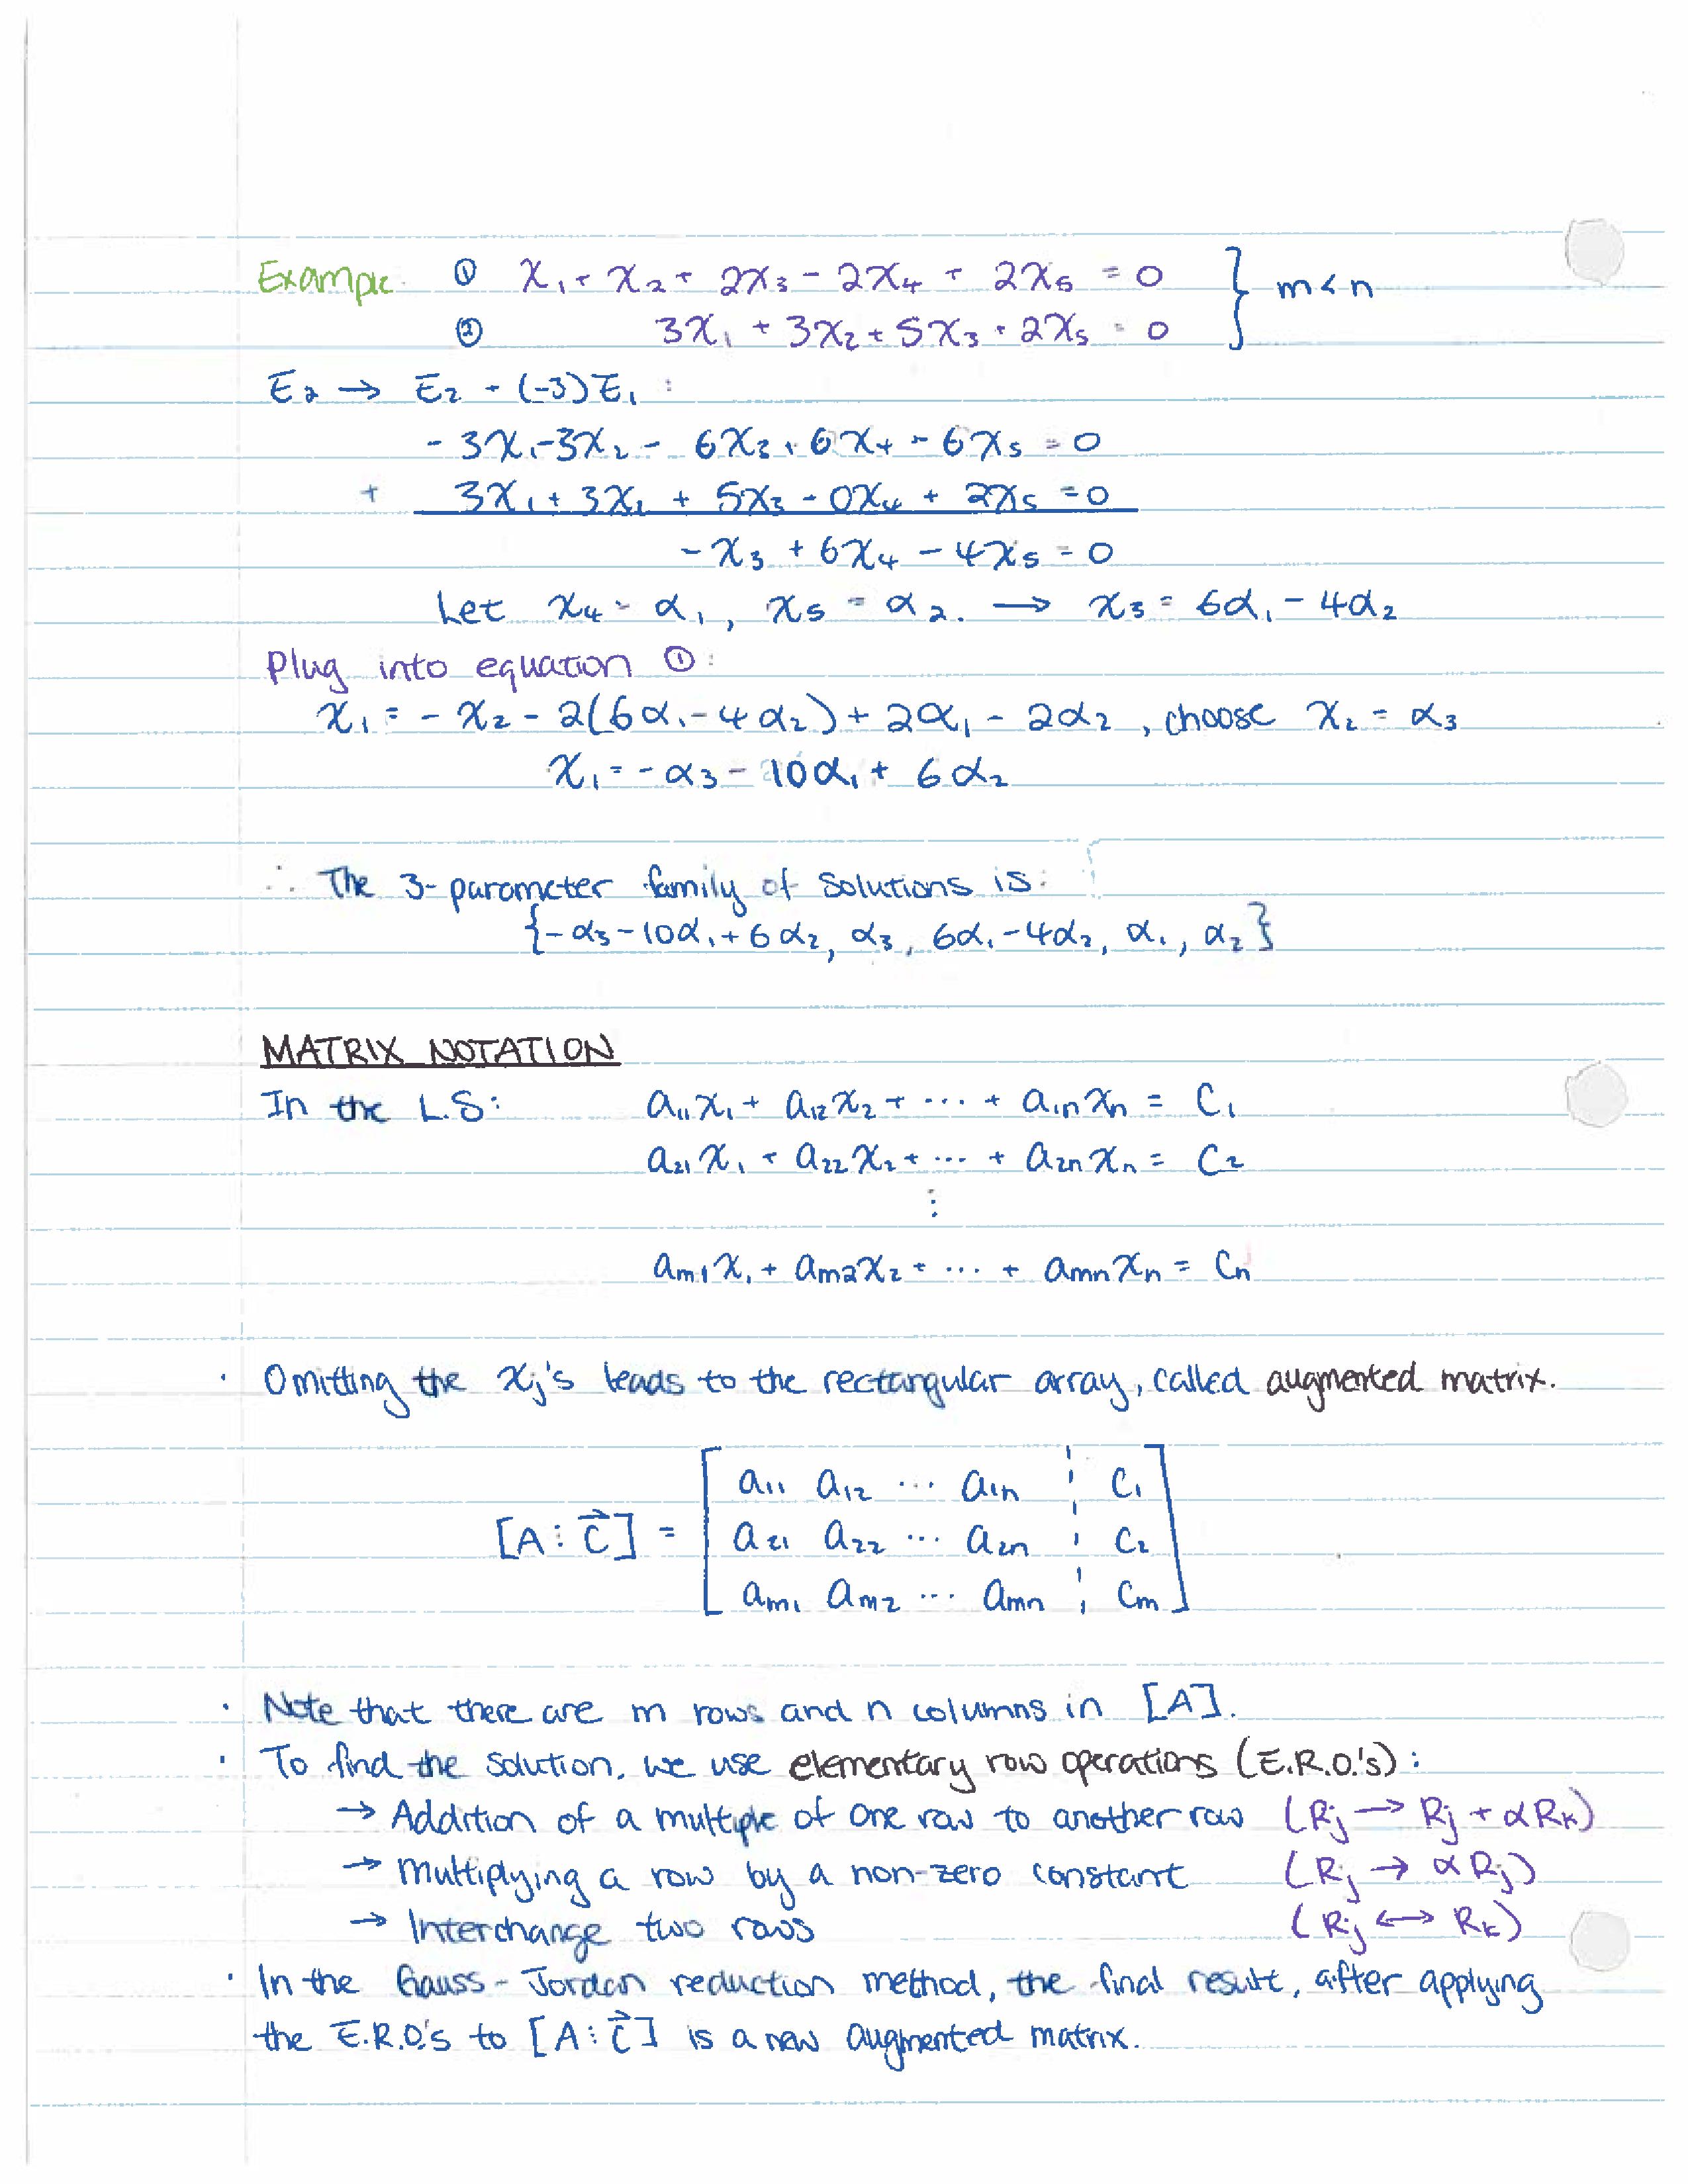 Example ① x₁ + x₂ + 2x₃ - 2x₄ + 2x₅ = 0 } m < n
② 3x₁ + 3x₂ + 5x₃ + 2x₅ = 0
E₂ → E₂ + (-3)E₁ :
- 3x₁ - 3x₂ - 6x₃ + 6x₄ - 6x₅ = 0
+ 3x₁ + 3x₂ + 5x₃ - 0x₄ + 2x₅ = 0
- x₃ + 6x₄ - 4x₅ = 0
Let x₄ = α₁, x₅ = α₂. → x₃ = 6α₁ - 4α₂
Plug into equation ① :
x₁ = - x₂ - 2(6α₁ - 4α₂) + 2α₁ - 2α₂, choose x₂ = α₃
x₁ = - α₃ - 10α₁ + 6α₂
∴ The 3-parameter family of solutions is:
{-α₃ - 10α₁ + 6α₂, α₃, 6α₁ - 4α₂, α₁, α₂}
MATRIX NOTATION
In the L.S: a₁₁x₁ + a₁₂x₂ + ... + a₁ₙxₙ = C₁
a₂₁x₁ + a₂₂x₂ + ... + a₂ₙxₙ = C₂
⋮
aₘ₁x₁ + aₘ₂x₂ + ... + aₘₙxₙ = Cₙ
· Omitting the xⱼ's leads to the rectangular array, called augmented matrix.
a₁₁ a₁₂ ... a₁ₙ ¦ C₁
[A ⋮ C⃗] = a₂₁ a₂₂ ... a₂ₙ ¦ C₂
aₘ₁ aₘ₂ ... aₘₙ ¦ Cₘ
· Note that there are m rows and n columns in [A].
· To find the solution, we use elementary row operations (E.R.O.'s) :
→ Addition of a multiple of one row to another row (Rⱼ → Rⱼ + αRₖ)
→ Multiplying a row by a non-zero constant (Rⱼ → αRⱼ)
→ Interchange two rows (Rⱼ ↔ Rₖ)
· In the Gauss-Jordan reduction method, the final result, after applying
the E.R.O.'s to [A ⋮ C⃗] is a new augmented matrix.